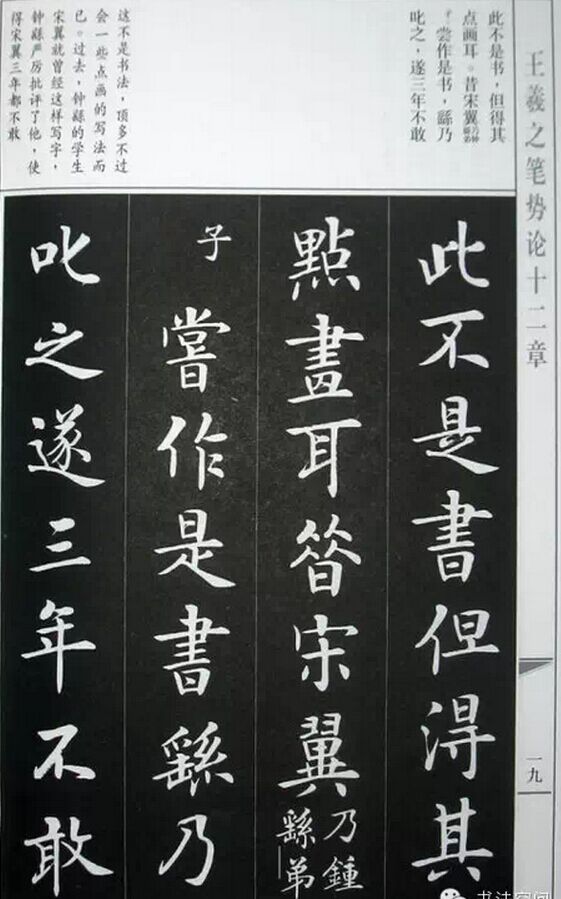 王羲之笔势论十二章
一九
此不是书，但得其
点画耳。昔宋翼乃钟
繇弟
子，尝作是书，繇乃
叱之，遂三年不敢
这不是书法，顶多不过
会一些点画的写法而
已。过去，钟繇的学生
宋翼就曾经这样写字，
钟繇严厉批评了他，使
得宋翼三年都不敢
此不是書但得其
點畫耳昝宋翼乃鍾
繇弟
子嘗作是書繇乃
叱之遂三年不敢
书法空间